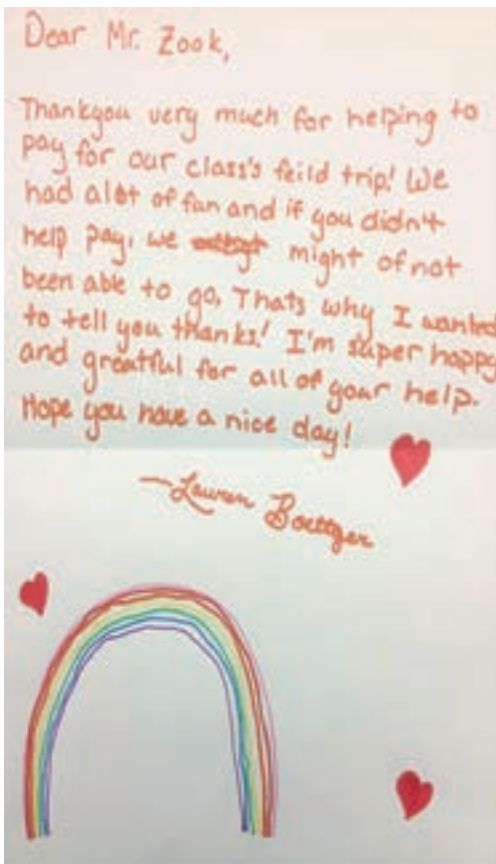 Dear Mr. Zook,
Thankyou very much for helping to
pay for our class's feild trip! We
had alot of fun and if you didn't
help pay, we might of not
been able to go. Thats why I wanted
to tell you thanks! I'm super happy
and greatful for all of your help.
Hope you have a nice day!
—Lauren Boettger